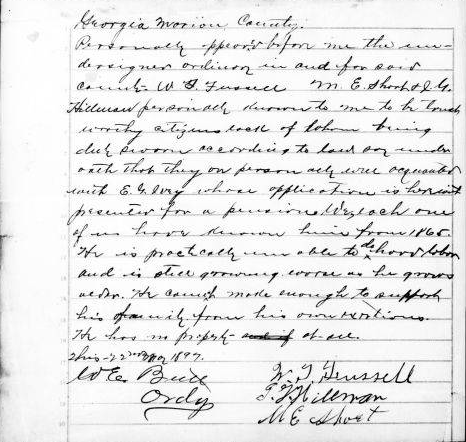 Georgia Marion County.
Personally appeared before me the un-
dersigned ordinary in and for said
county W T Fussell M. E. Short & J. G.
Hillman personally known to me to be trust
worthy citizens each of whom being
duly sworn according to law say under
oath that they are personally well acquainted
with E. G. Ivey whose application is herewith
presented for a pension. We, each one
of us have known him from 1865.
He is practically unable to do hard labor
and is still growing worse as he grows
older. He cannot make enough to support
his family from his own exertions.
He has no property at all.
This 22nd 1897.
W E Ordy
W. T. Fussell
Hillman
M E Short